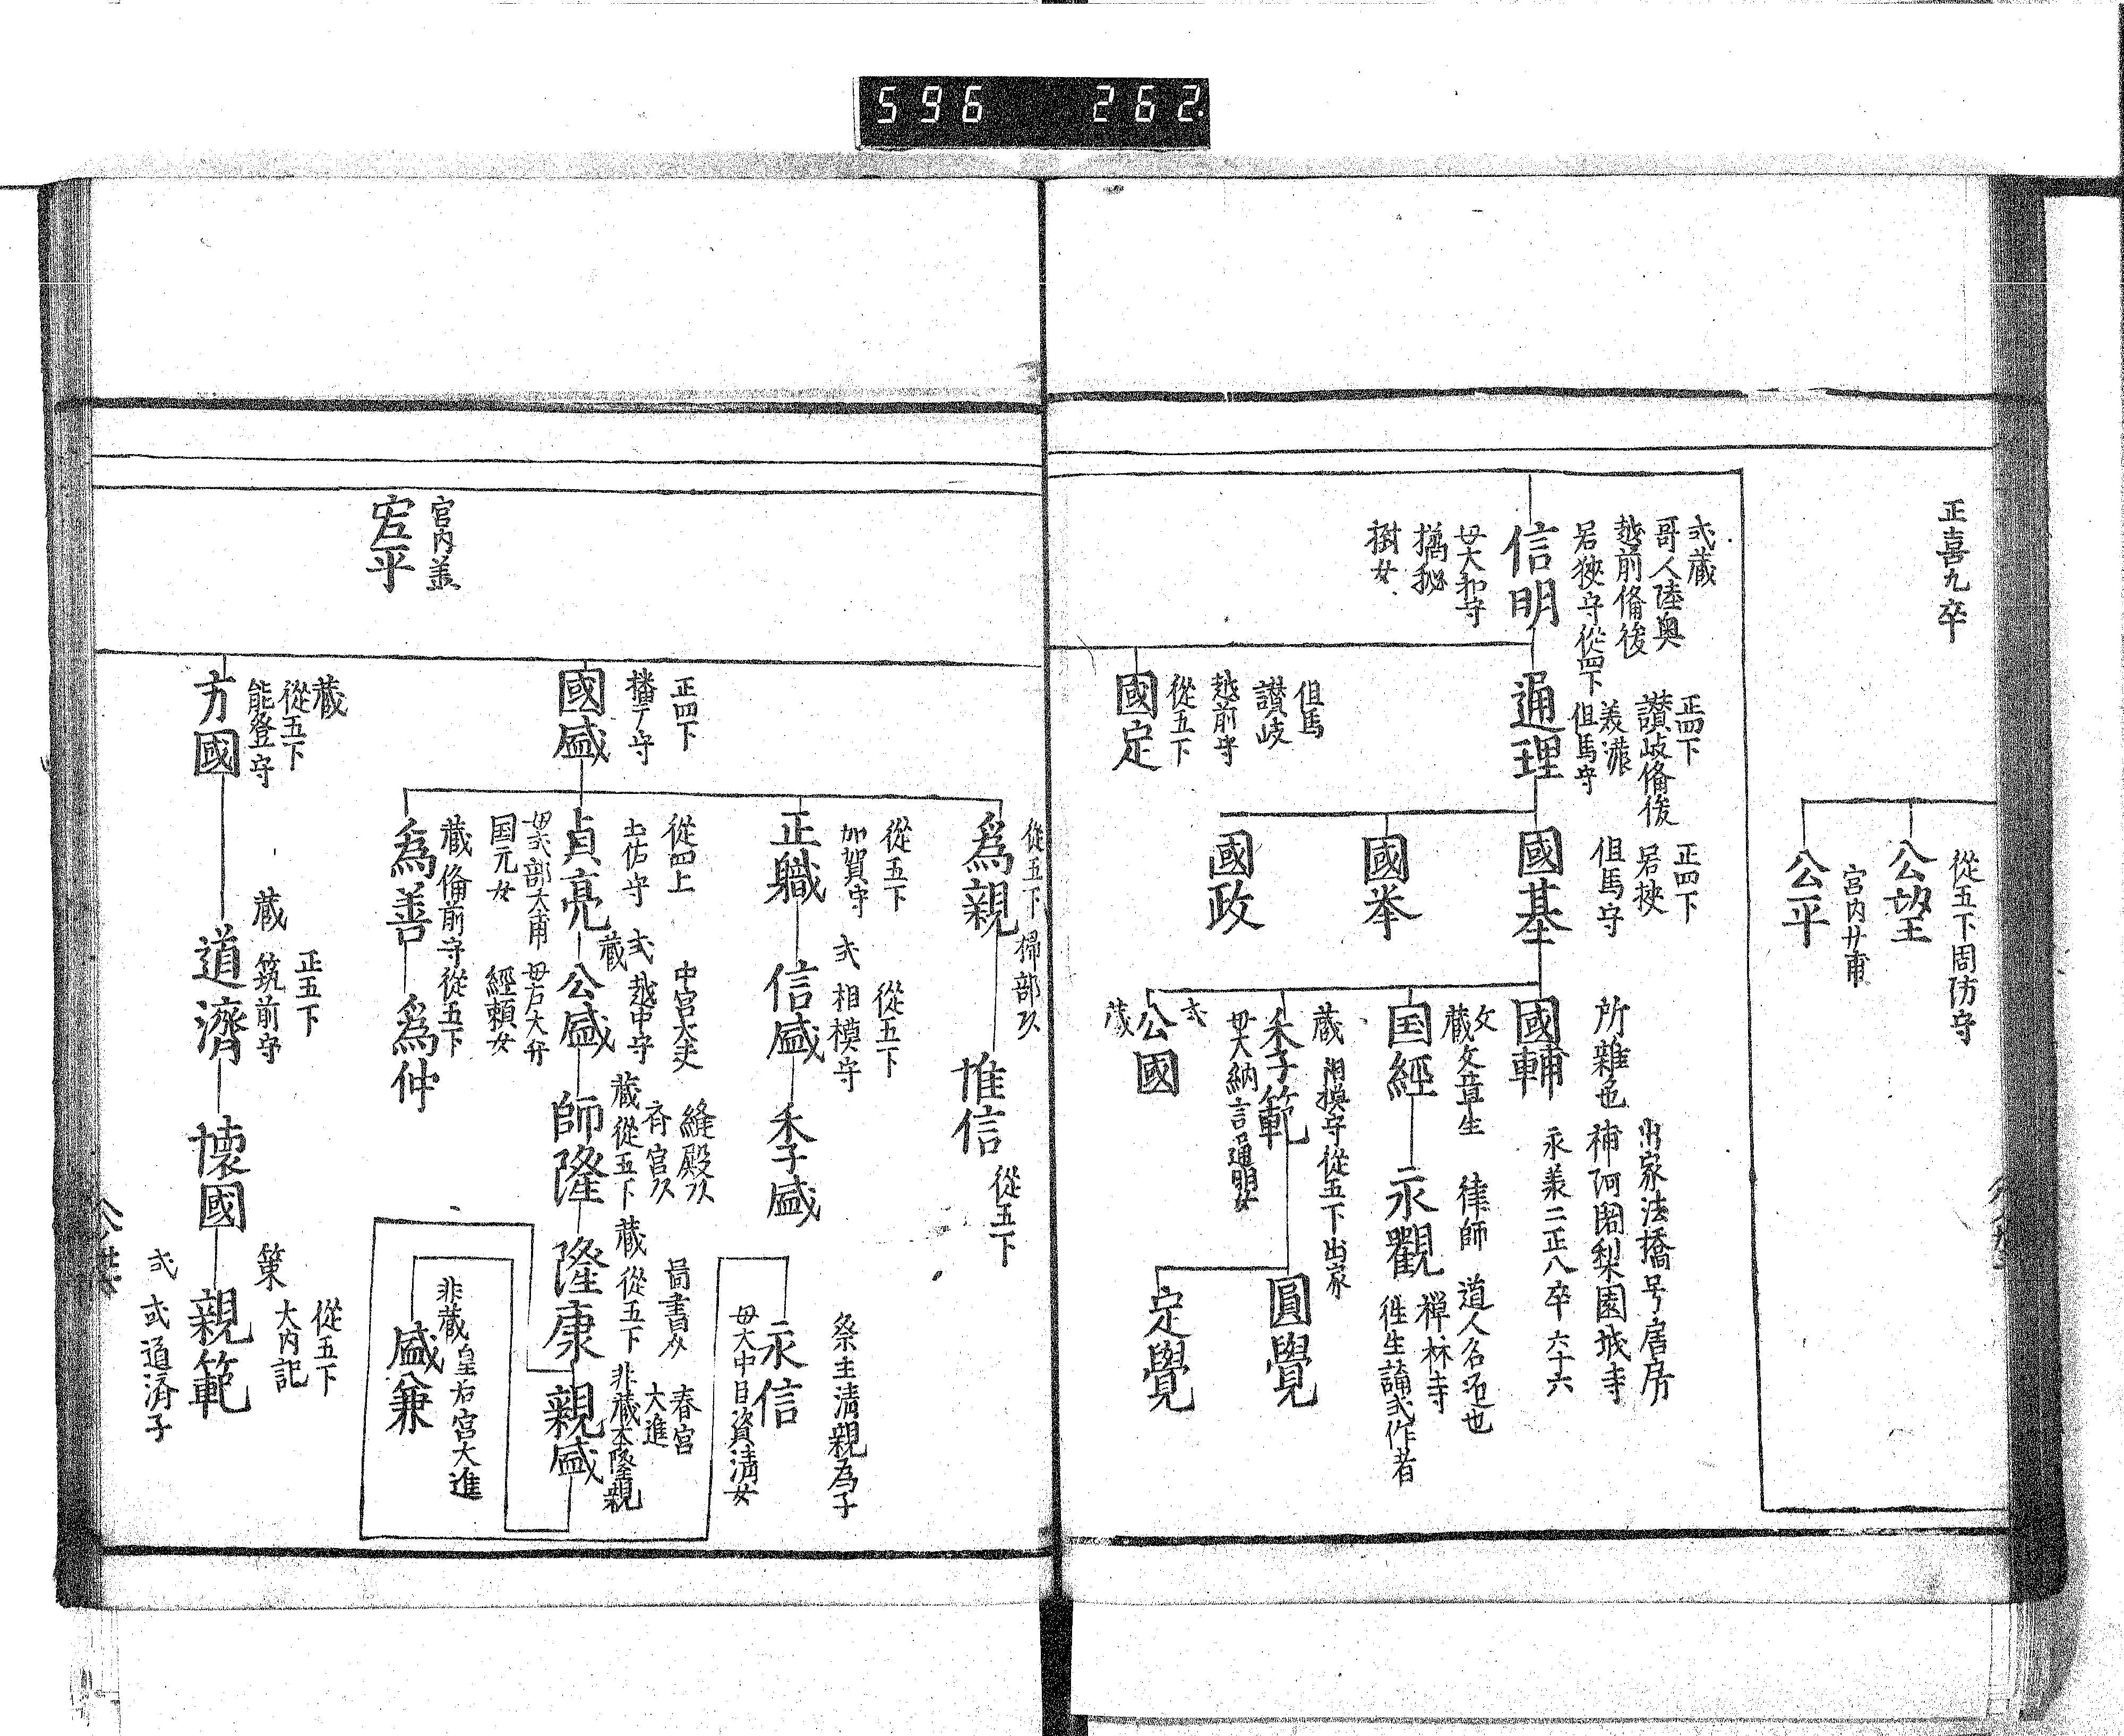 596 262
正喜九卒
從五下周防守
公望
宮内少甫
公平
式蔵
哥人陸奥
越前備後
若狭守從四下
信明
母大和守
樹女
正四下
讃岐備後
美濃
但馬守
通理
但馬
讃岐
越前守
從五下
國定
正四下
若狭
但馬守
國基
國挙
國政
所雑也
國輔
文
蔵文章生
国経
蔵
相摸守從五下出家
季範
母大納言通明女
式
公國
蔵
出家法橋号唐房
補阿闍梨園城寺
永義二正八卒六十六
律師
道人名迊也
禅林寺
永觀
往生講式作者
圓覺
定覺
宮内丞
正四下
播广守
國盛
蔵
從五下
能登守
方國
從五下掃部久
為親
惟信
從五下
從五下
加賀守
正職
從五下
式相模守
信盛
季盛
從四上
土佐守
貞亮
母式部大甫
国元女
式
蔵
中宮大夫
越中守
公盛
母右大弁
經頼女
縫殿久
斉宮久
蔵從五下
師隆
啚書久
蔵從五下
隆康
春宮
大進
非蔵本隆親
親盛
蔵備前守從五下
為善
為仲
祭主清親為子
永信
母大中臣資清女
非蔵皇右宮大進
盛兼
蔵
正五下
筑前守
道濟
懐國
策
從五下
大内記
親範
式
式道済子